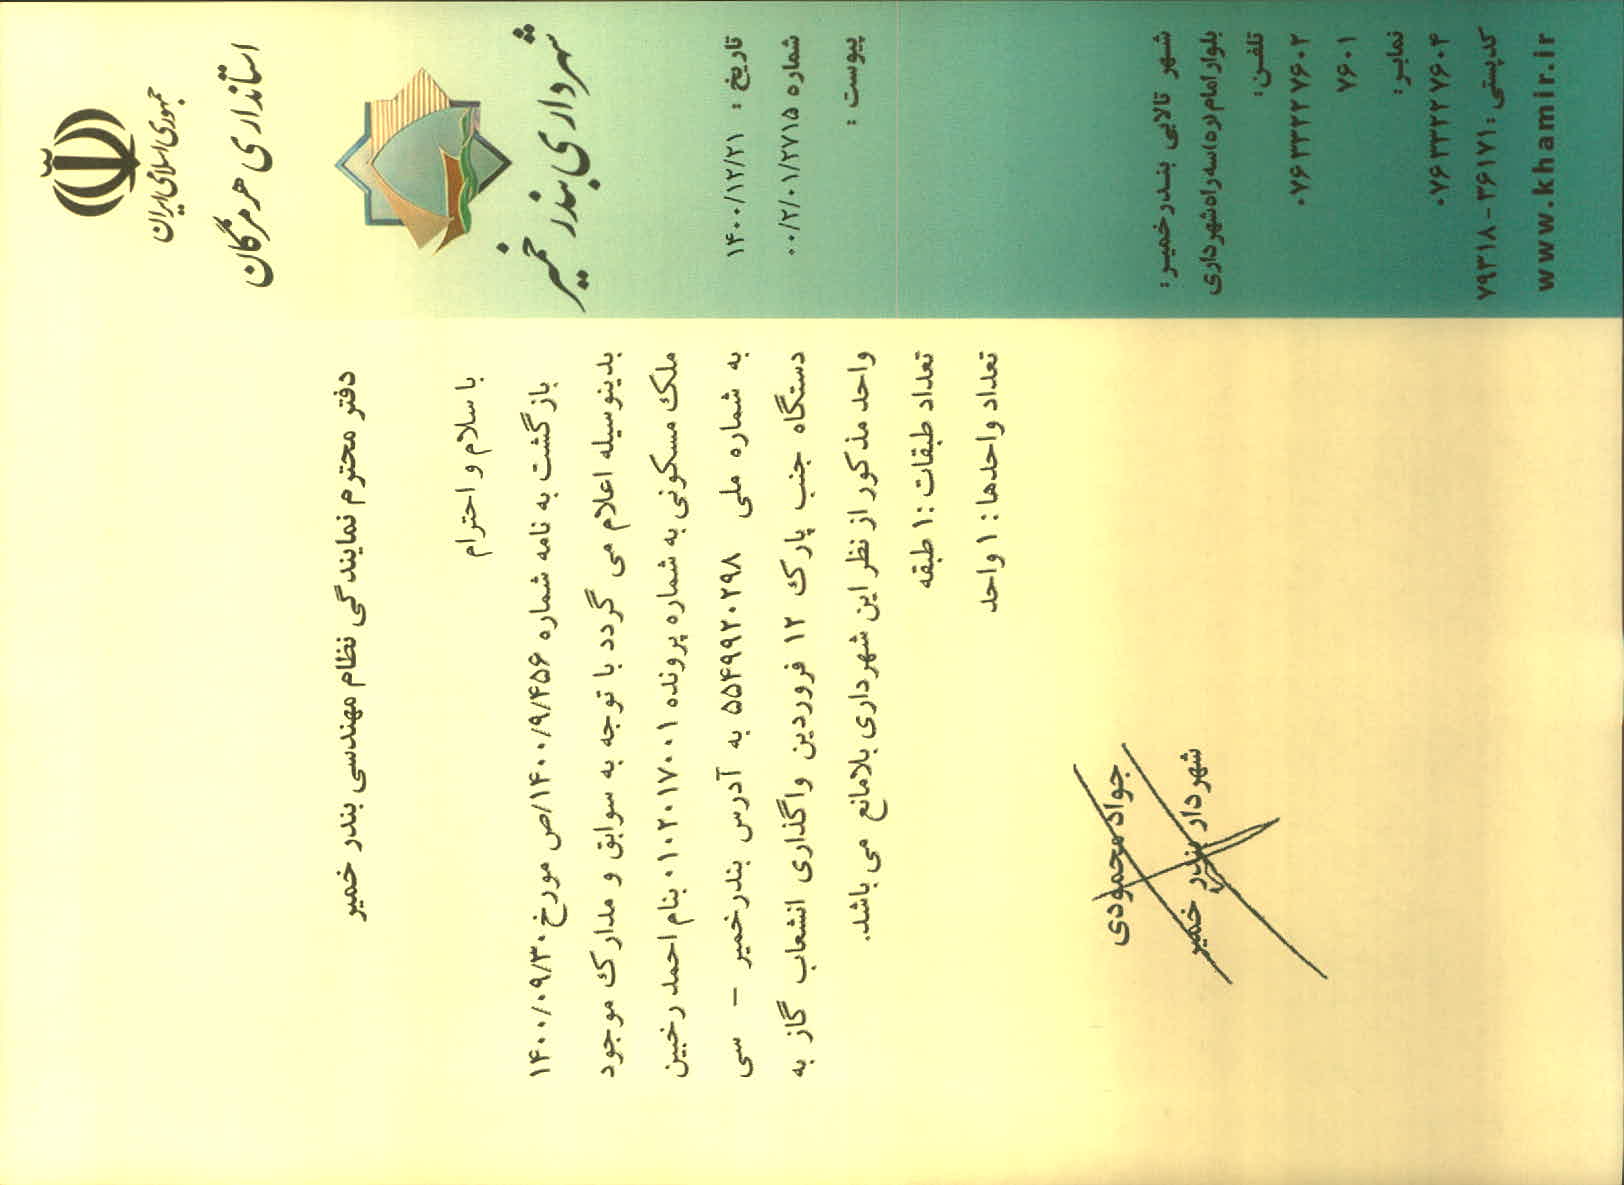 جمهوری اسلامی ایران
استانداری هرمزگان
شهرداری بندر خمیر
تاریخ : ۱۴۰۰/۱۲/۲۱
شماره ۰۰/۲/۰۱/۲۷۱۵
پیوست :
دفتر محترم نمایندگی نظام مهندسی بندر خمیر
با سلام و احترام
بازگشت به نامه شماره ۱۴۰۰/۹/۴۵۶/ص مورخ ۱۴۰۰/۰۹/۳۰
بدینوسیله اعلام می گردد با توجه به سوابق و مدارک موجود
ملک مسکونی به شماره پرونده ۰۱۰۲۰۱۷۰۰۱ بنام احمد رخبین
به شماره ملی ۵۵۴۹۹۲۰۲۹۸ به آدرس بندرخمیر – سی
دستگاه جنب پارک ۱۲ فروردین واگذاری انشعاب گاز به
واحد مذکور از نظر این شهرداری بلامانع می باشد.
تعداد طبقات :۱ طبقه
تعداد واحدها : ۱ واحد
جواد محمودی
شهردار بندر خمیر
شهر تالابی بندرخمیر:
بلوار امام(ره)سه راه شهرداری
تلفن:
۰۷۶۳۳۲۲۷۶۰۲
۷۶۰۱
نمابر:
۰۷۶۳۳۲۲۷۶۰۴
کدپستی : ۳۶۱۷۱ - ۷۹۳۱۸
www.khamir.ir